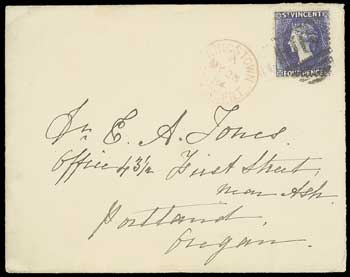 ST VINCENT
FOUR PENCE
Dr. E. A. Jones.
Office 43½ First Street,
near Ash.
Portland,
Oregan.